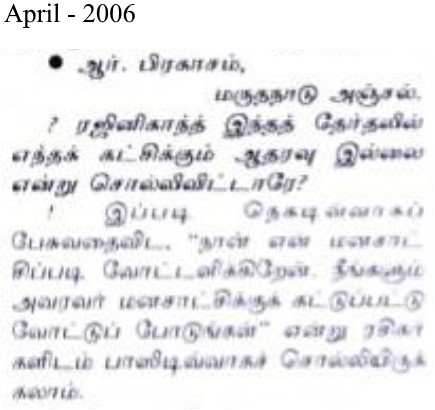 April - 2006
● ஆர். பிரகாசம்,
மருதநாடு அஞ்சல்.
? ரஜினிகாந்த் இந்தத் தேர்தலில்
எந்தக் கட்சிக்கும் ஆதரவு இல்லை
என்று சொல்லிவிட்டாரே?
! இப்படி நெகடிவ்வாகப்
பேசுவதைவிட, "நான் என் மனசாட்
சிப்படி வோட்டளிக்கிறேன். நீங்களும்
அவரவர் மனசாட்சிக்குக் கட்டுப்பட்டு
வோட்டுப் போடுங்கள்" என்று ரசிகர்
களிடம் பாஸிடிவ்வாகச் சொல்லியிருக்
கலாம்.